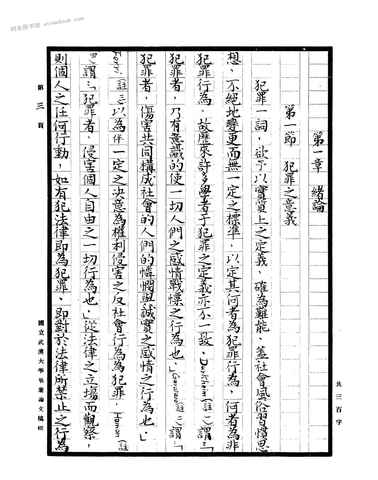 第一章 緒論
第一節 犯罪之意義
犯罪一詞，欲予以實質上之定義，確為難能，蓋社會風俗習慣思
想，不絕地變更而無一定之標準，以定其何者為犯罪行為，何者為非
犯罪行為，故歷來許多學者于犯罪之定義亦不一致。(註一)謂：「
犯罪者，乃有意識的使一切人們之感情戰慄之行為也」(註二)謂：「
犯罪者，傷害共同構成社會的人們的憐憫與誠實之感情之行為也」
(註三)以為伴一定之決意為權利侵害之反社會行為為犯罪。
謂：「犯罪者，侵害個人自由之一切行為也」從法律之立場而觀察，
則個人之任何行動，如有犯法律即為犯罪，即對於法律所禁止之行為
第三頁
國立武漢大學畢業論文稿紙
共三百字